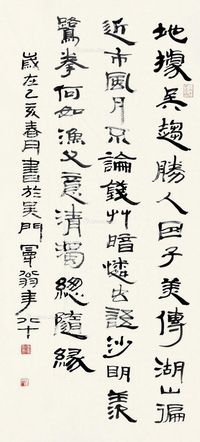 地據吳趨勝人因子美傳湖山徧
近市風月不論錢艸暗憐虫語沙明羨
鷺拳何如漁父意清濁總隨緣
歲在乙亥春月書於吳門曼翁年八十